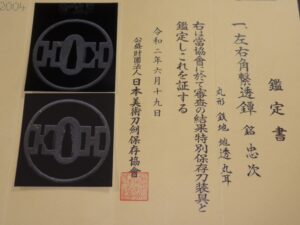 2004
鑑定書
一、左右角繋透鐔 銘 忠次
丸形 鉄地 地透 丸耳
右は當協會に於て審査の結果特別保存刀装具と
鑑定しこれを証する
令和二年六月十九日
公益財団法人日本美術刀剣保存協會